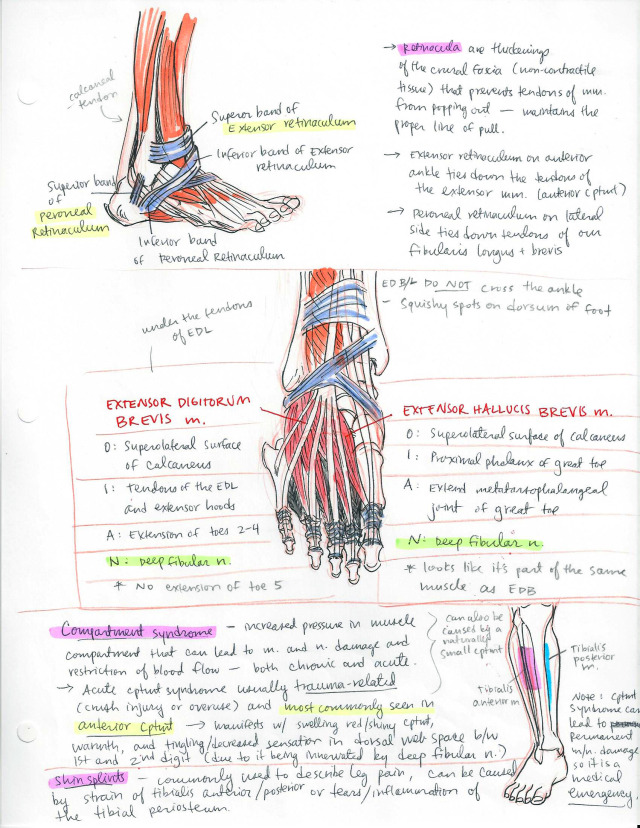 calcaneal
tendon
Superior band of
Extensor retinaculum
Inferior band of Extensor
Retinaculum
Superior band
of
Peroneal
Retinaculum
Inferior band
of Peroneal Retinaculum
→ Retinacula are thickenings
of the crural fascia (non-contractile
tissue) that prevents tendons of mm.
from popping out — maintains the
proper line of pull.
→ Extensor retinaculum on anterior
ankle ties down the tendons of
the extensor mm. (anterior cptmt)
→ Peroneal retinaculum on lateral
side ties down tendons of our
fibularis longus + brevis
under the tendons
of EDL
EDB/L DO NOT cross the ankle
- Squishy spots on dorsum of foot
EXTENSOR DIGITORUM
BREVIS m.
O: Superolateral surface
of calcaneus
I: Tendons of the EDL
and extensor hoods
A: Extension of toes 2-4
N: Deep fibular n.
* No extension of toe 5
EXTENSOR HALLUCIS BREVIS m.
O: Superolateral surface of calcaneus
I: Proximal phalanx of great toe
A: Extend metatarsophalangeal
joint of great toe
N: Deep fibular n.
* looks like it's part of the same
muscle as EDB
Compartment syndrome — increased pressure in muscle
compartment that can lead to m. and n. damage and
restriction of blood flow — both chronic and acute.
can also be
caused by a
naturally
small cptmt
→ Acute cptmt syndrome usually trauma-related
(crush injury or overuse) and most commonly seen in
anterior cptmt → manifests w/ swelling red/shiny cptmt,
warmth, and tingling/decreased sensation in dorsal web space b/w
1st and 2nd digit (due to it being innervated by deep fibular n.)
Shin splints — commonly used to describe leg pain, can be caused
by strain of tibialis anterior/posterior or tears/inflammation of
the tibial periosteum.
Tibialis
anterior m
Tibialis
posterior
m.
Note: cptmt
syndrome can
lead to
permanent
m/n. damage
so it is a
medical
emergency.